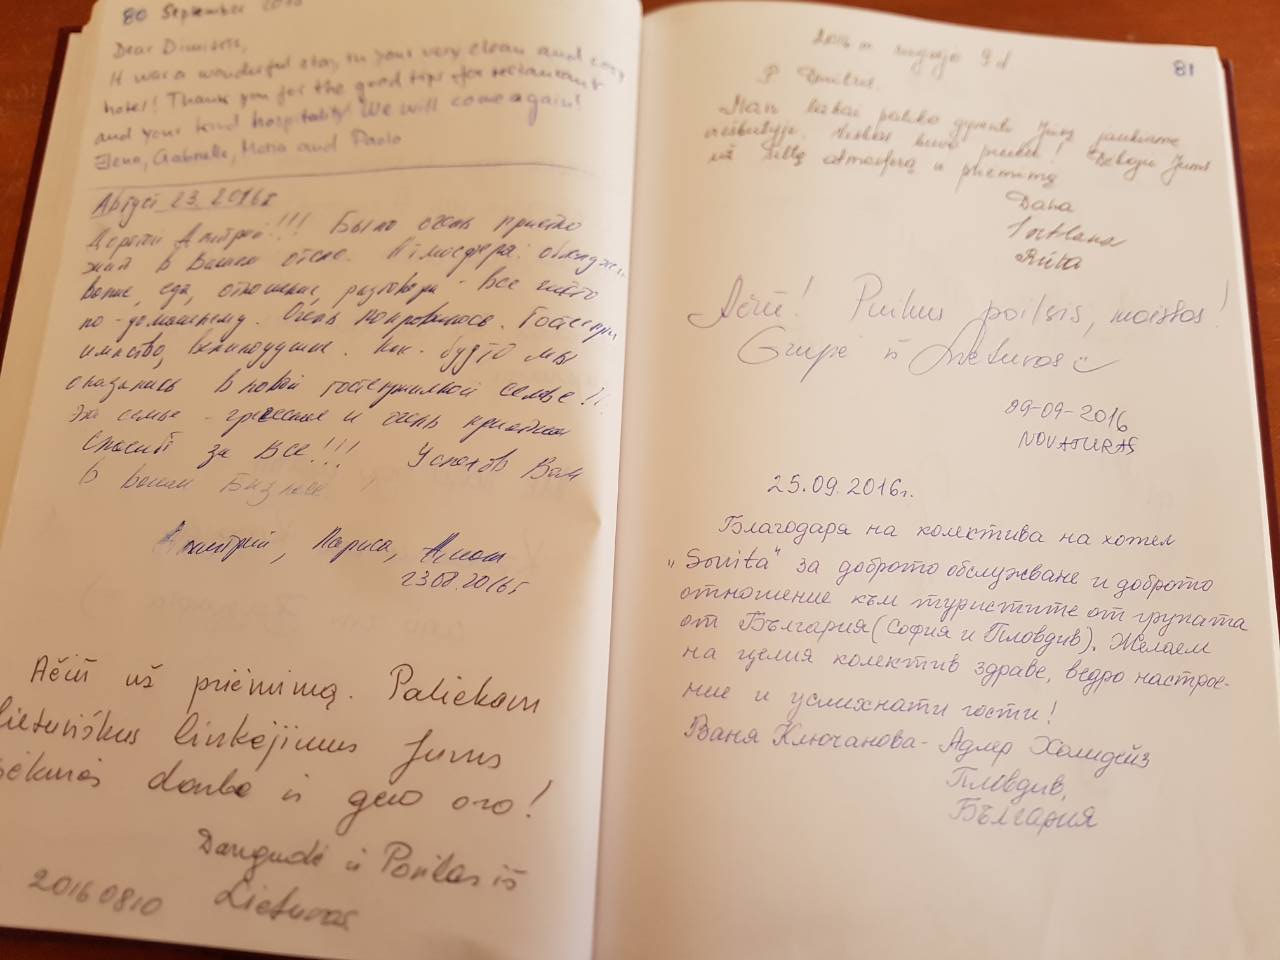 80 September 2016
Dear Dimitris,
It was a wonderful stay in your very clean and cozy
hotel! Thank you for the good tips for restaurant
and your kind hospitality! We will come again!
Elena, Gabriele, Mara and Paolo
Август 23. 2016г
Дорогой Дмитрий!!! Было очень приятно
жить в Вашем отеле. Атмосфера:
еда, отношение, разговоры - все
по-домашнему. Очень понравилось. Гостепри
имство, великодушие. Как-будто мы
оказались в новой гостеприимной семье!!!
Эта семья - греческая и очень приятная
Спасибо за все!!! Успехов Вам
в вашем Бизнесе!
Дмитрий, Лариса,
23.08.2016г
Ačiū už priėmimą. Paliekam
lietuviškus linkėjimus Jums
sėkmės darbe ir gero oro!
Dangudė ir Povilas iš
20160810 Lietuvos
81
2016 m rugsėjo 9 d
P. Dmitrus.
Man labai patiko gyventi Jūsų jaukiame
viešbutyje. Viskas buvo puiku! Dėkoju Jums
už šiltą atmosferą ir priėmimą
Dana
Svetlana
Rūta
Ačiū! Puikus poilsis, maistas!
Grupė iš Lietuvos
09-09-2016
NOVATURAS
25.09.2016г.
Благодаря на колектива на хотел
„Sonita" за доброто обслужване и доброто
отношение към туристите от групата
от България (София и Пловдив). Желаем
на целия колектив здраве, ведро настрое-
ние и усмихнати гости!
Ваня Ключанова - Адлер Холидейз
Пловдив,
България